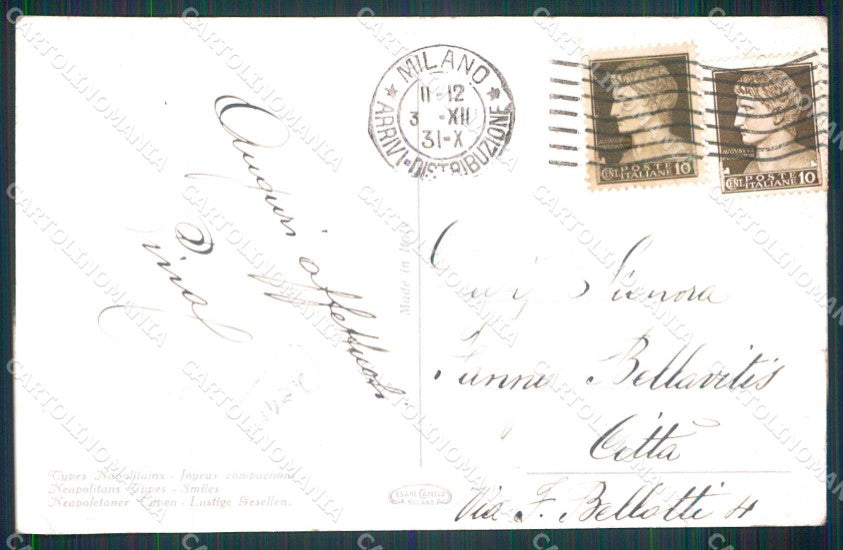 MILANO
11-12
3 XII
31-X
ARRIVI-DISTRIBUZIONE
POSTE
CENT. ITALIANE 10
POSTE
CENT. ITALIANE 10
Auguri affettuosi
Made in Italy
Signora
Bellavitis
Città
Via F. Bellotti 4
Types Napolitains - Joyeux compagnons
Neapolitans Types - Smiles
Neapoletaner Typen - Lustige Gesellen.
CARTOLINOMANIA